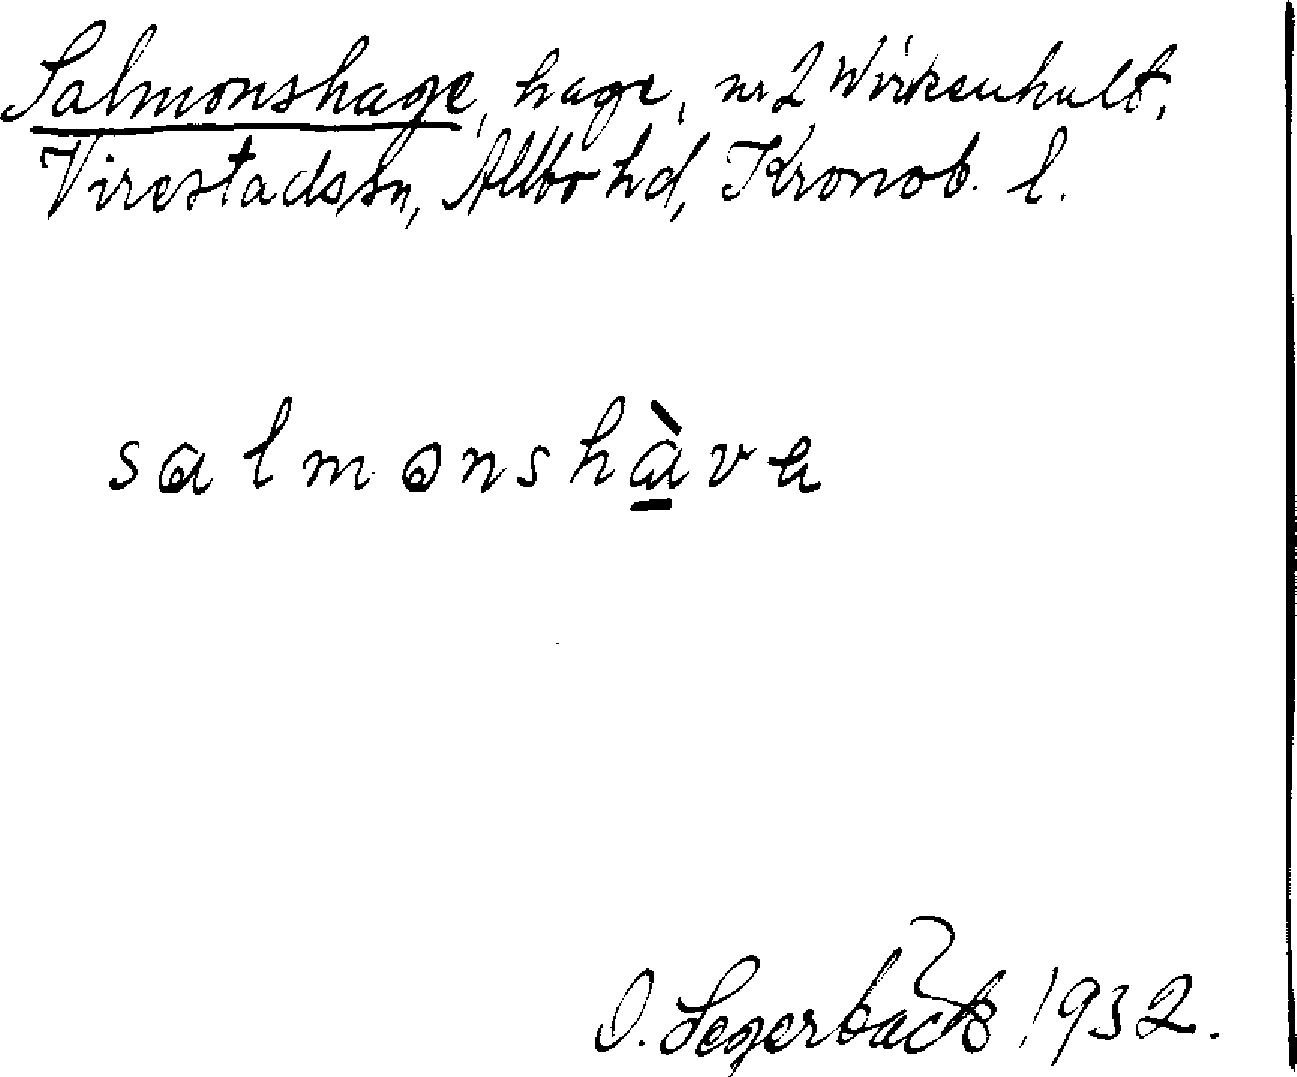 Salmonshage, hage, nr 2 Wirkenhult,
Virestads sn, Allbo hd, Kronob. l.
salmonshàva
O. Segerbäck 1932.